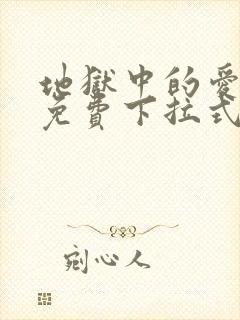 地獄中的愛
免費下拉式
剜心人